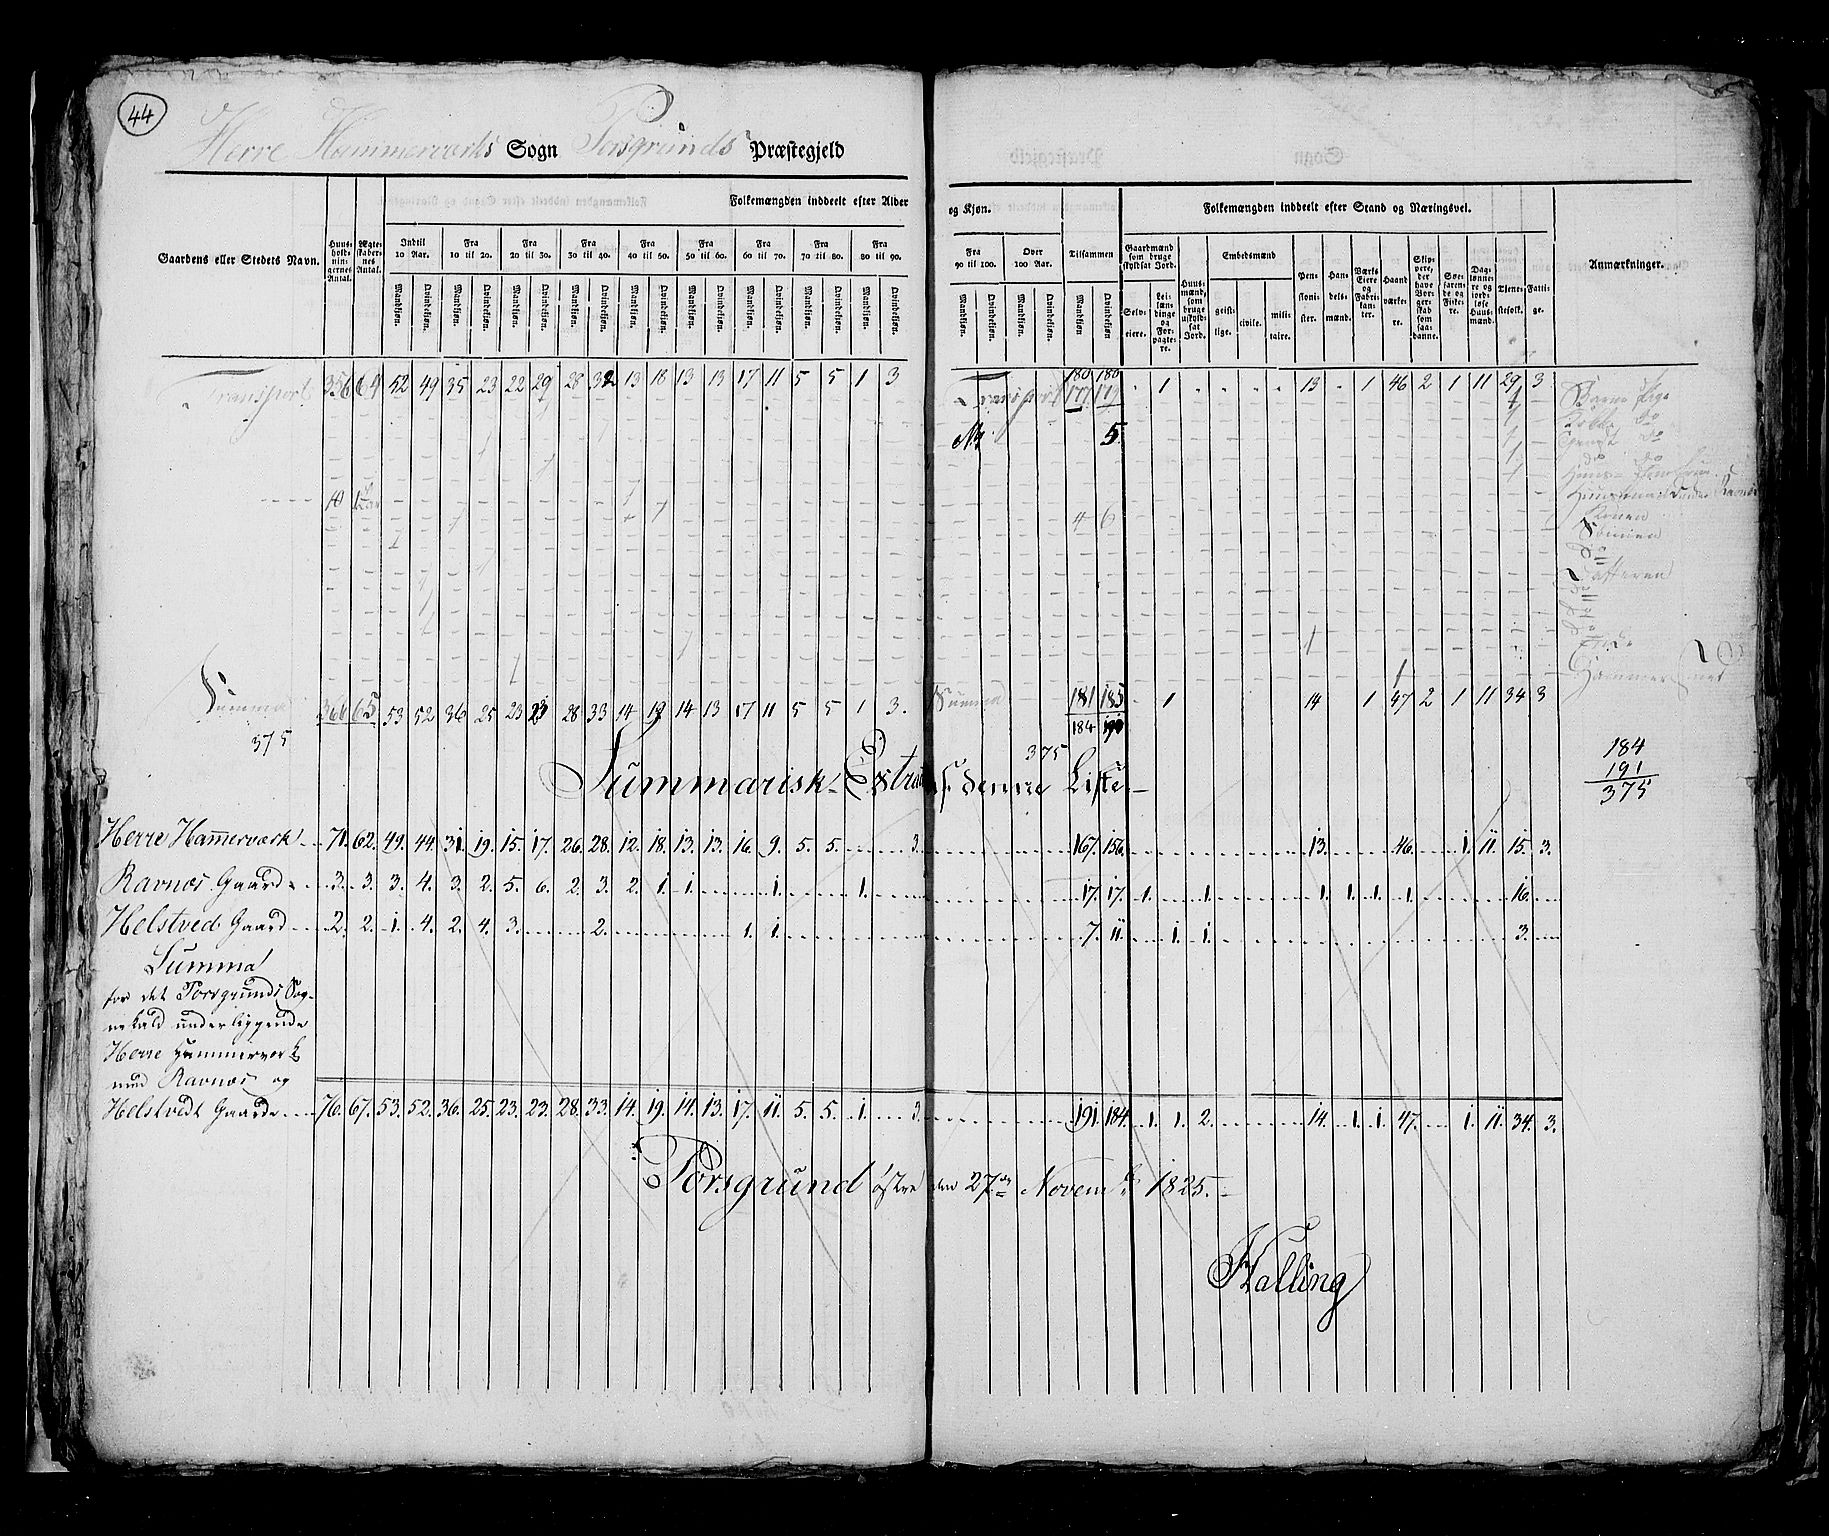 44
Herre Hammerværks Sogn Porsgrunds Præstegjeld
Gaardens eller Stedets Navn.
Huusholdningernes Antal.
Ægteskabernes Antal.
Folkemængden inddeelt efter Alder og Kjøn.
Indtil 10 Aar. Fra 10 til 20. Fra 20 til 30. Fra 30 til 40. Fra 40 til 50. Fra 50 til 60. Fra 60 til 70. Fra 70 til 80. Fra 80 til 90. Fra 90 til 100. Over 100 Aar. Tilsammen
Mandkjøn. Qvindekjøn.
Folkemængden inddeelt efter Stand og Næringsvei.
Gaardmænd som bruge skyldsat Jord.
Selveiere. Leilændinge og Forpagtere.
Huusmænd, som bruge uskyldsat Jord.
Embedsmænd
geistlige. civile. militaire.
Pensionister. Handelsmænd. Værks Eiere og Fabrikanter. Haandværkere.
Skippere, der have Borgerskab som saadanne.
Søefarende og Fiskere.
Daglønnere og jordløse Huusmænd.
Tjenestefolk. Fattige.
Anmærkninger.
Transport 356 64 52 49 35 23 22 29 28 32 13 18 13 13 17 11 5 5 1 3 Transport 180 180 177 179 1 13 1 46 2 1 11 29 3
5
10
4 6
Konen
Sønnen
Do
Datteren
Do
Do
Do
Summa 366 65 53 52 36 25 23 23 28 33 14 19 14 13 17 11 5 5 1 3. Summa 181 185 1 14 1 47 2 1 11 34 3
184 191
375
375
184
191
375
Summarisk Extract af denne Liste
Herre Hammerværk 71. 62. 49. 44. 31. 19. 15. 17. 26. 28. 12. 18. 13. 13. 16. 9. 5. 5. 3. 167. 156. 13. 46. 1. 11. 15. 3.
Ravnæs Gaard 3. 3. 3. 4. 3. 2. 5. 6. 2. 3. 2. 1. 1. 1. 1. 17. 17. 1. 1. 1. 1. 1. 1. 16.
Helstved Gaard 2. 2. 1. 4. 2. 4. 3. 2. 1. 1. 7. 11. 1. 1. 3.
Summa
for det Porsgrunds Sog-
nekald underliggende
Herre Hammerværk
med Ravnæs og
Helstvedt Gaarde 76. 67. 53. 52. 36. 25. 23. 23. 28. 33. 14. 19. 14. 13. 17. 11. 5. 5. 1. 3. 191. 184. 1. 1. 2. 14. 1. 1. 47. 1. 11. 34. 3.
Porsgrund østre den 27de Novembr 1825.
Halling